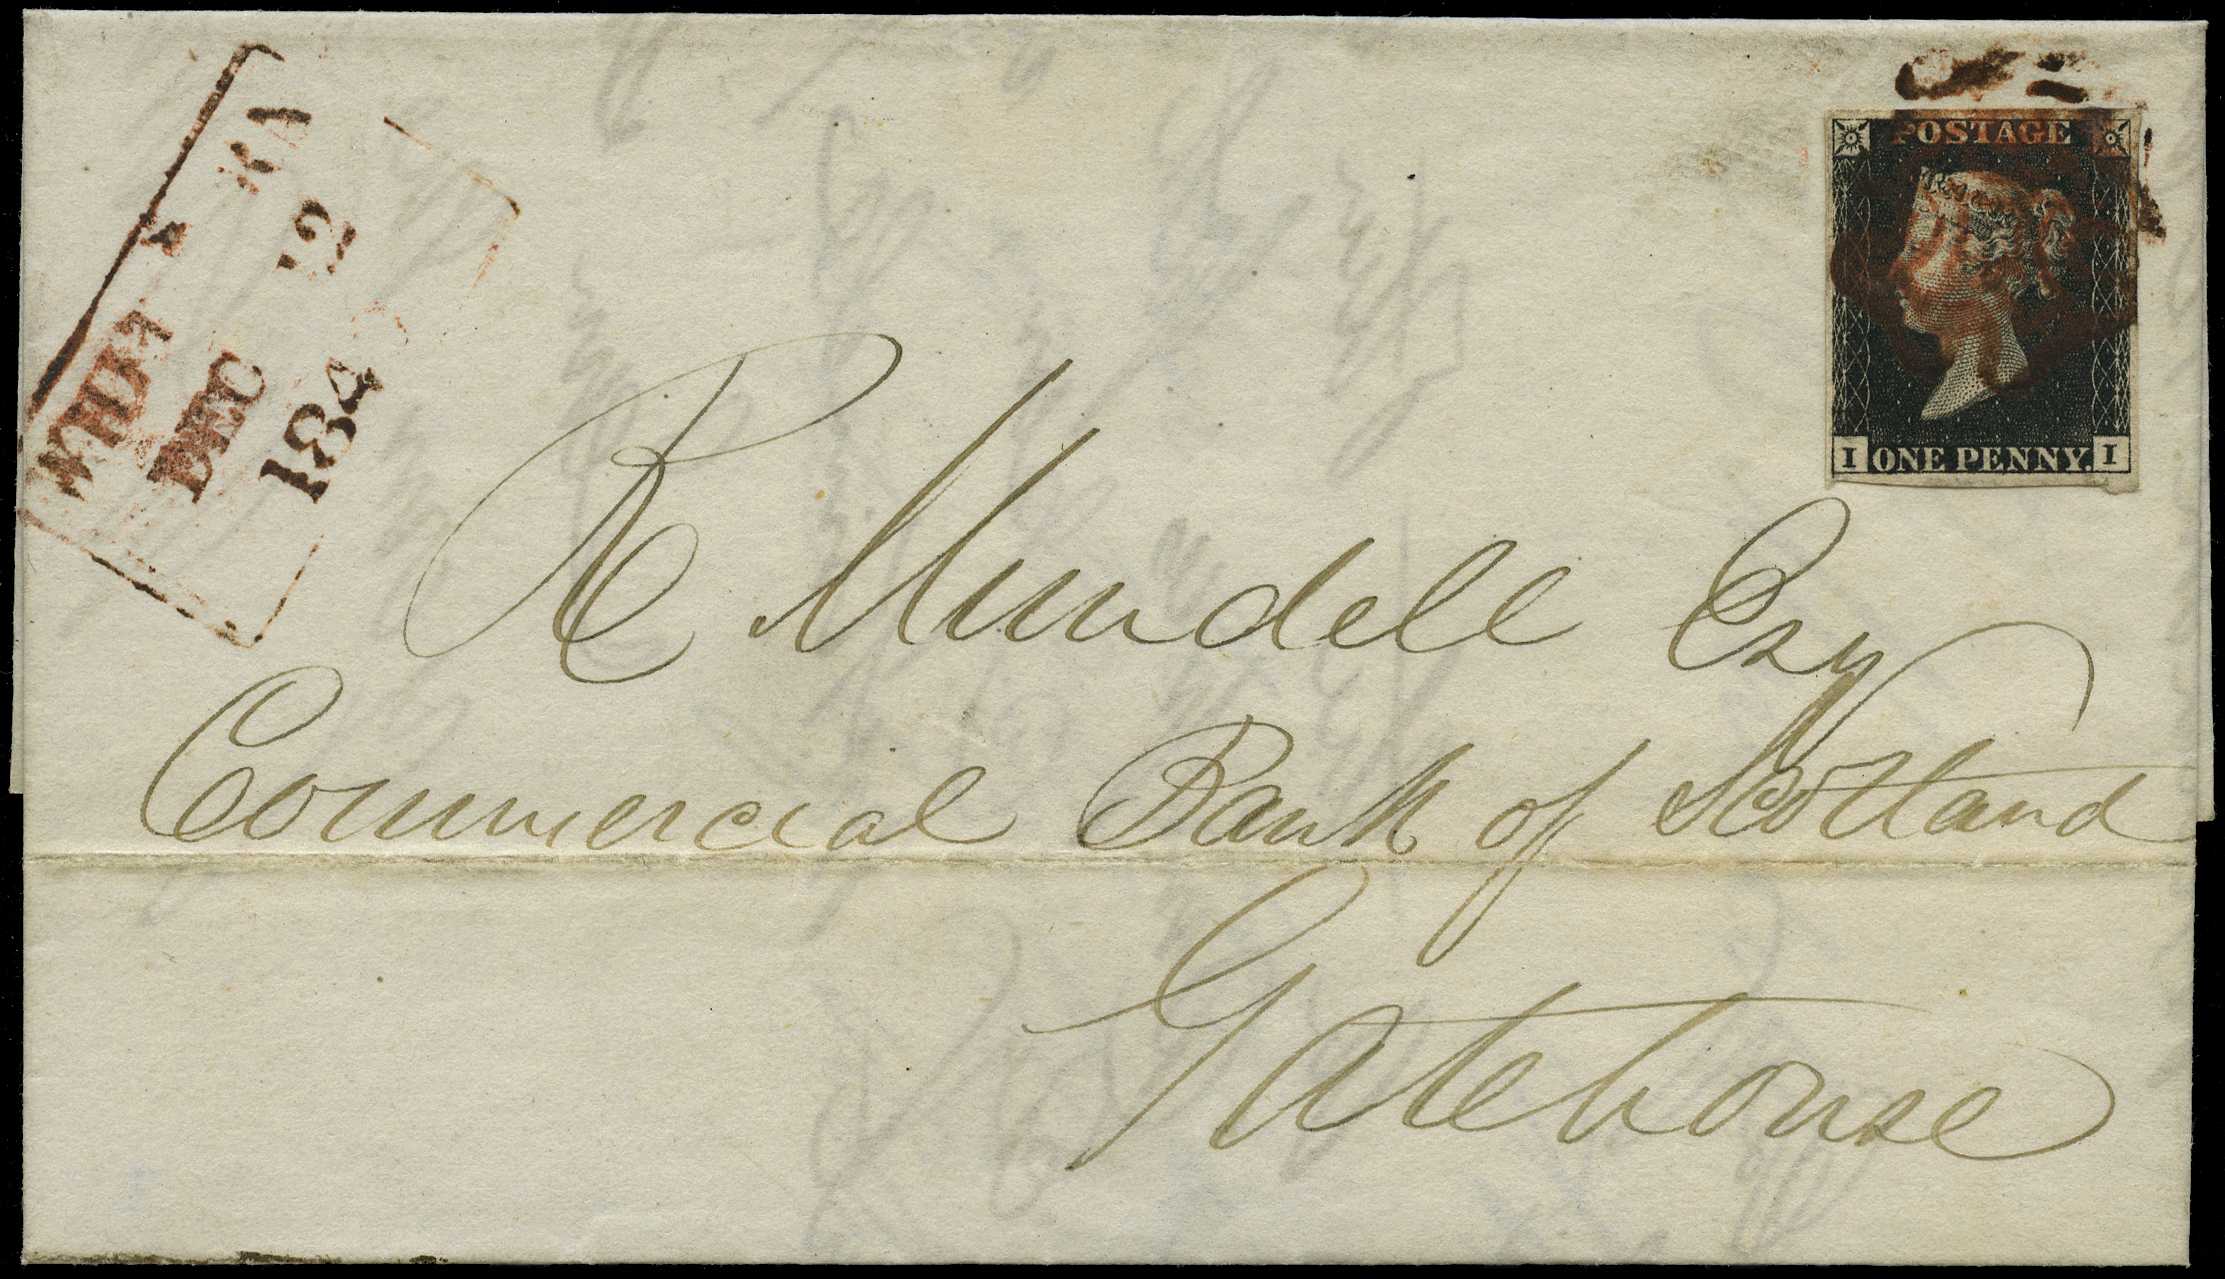 DEC 12
184
POSTAGE
I ONE PENNY. I
R Mundell Esq
Commercial Bank of Scotland
Gatehouse